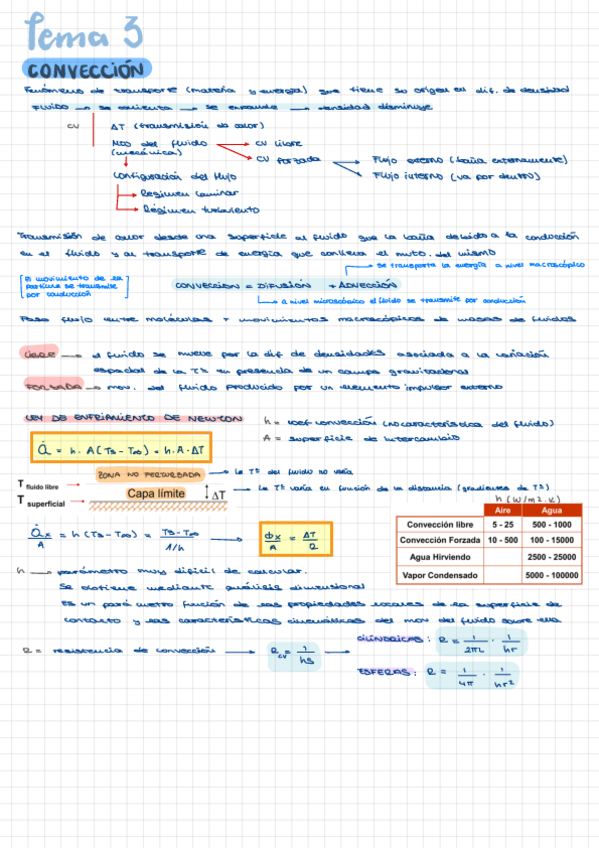 Tema 3
CONVECCIÓN
Fenómeno de transporte (materia y energía) que tiene su origen en dif. de densidad
FLUIDO → se calienta → se expande → densidad disminuye
CV
ΔT (transmisión de calor)
Mov del fluido → CV libre
(mecánica) → CV forzada → Flujo externo (baña externamente)
→ Flujo interno (va por dentro)
Configuración del flujo
→ Régimen laminar
→ Régimen turbulento
Transmisión de calor desde una superficie al fluido que la baña debido a la conducción
en el fluido y al transporte de energía que conlleva el mvto. del mismo
→ se transporta la energía a nivel macroscópico
[El movimiento de las partículas se transmite por conducción]
CONVECCIÓN = DIFUSIÓN + ADVECCIÓN
→ a nivel microscópico el fluido se transmite por conducción
Paso flujo entre moléculas + movimientos macroscópicos de masas de fluidos
LIBRE → el fluido se mueve por la dif. de densidades asociada a la variación
espacial de la Tª en presencia de un campo gravitatorio
FORZADA → mov. del fluido producido por un elemento impulsor externo
LEY DE ENFRIAMIENTO DE NEWTON
h = coef. convección (no característica del fluido)
A = superficie de intercambio
Q̇ = h · A (Ts - T∞) = h · A · ΔT
ZONA NO PERTURBADA → La Tª del fluido no varía
T fluido libre
Capa límite ΔT → La Tª varía en función de la distancia (gradientes de Tª)
T superficial
h (W/m2·K)
Aire Agua
Convección libre 5 - 25 500 - 1000
Convección Forzada 10 - 500 100 - 15000
Agua Hirviendo 2500 - 25000
Vapor Condensado 5000 - 100000
Q̇x/A = h (Ts - T∞) = Ts - T∞ / 1/h → Φx/A = ΔT/R
h → parámetro muy difícil de calcular.
Se obtiene mediante análisis dimensional
Es un parámetro función de las propiedades locales de la superficie de
contacto y las características cinemáticas del mov del fluido sobre ella
R = resistencia de convección → Rcv = 1/hS →
CILÍNDRICAS: R = 1/2πL · 1/hr
ESFERAS: R = 1/4π · 1/hr²